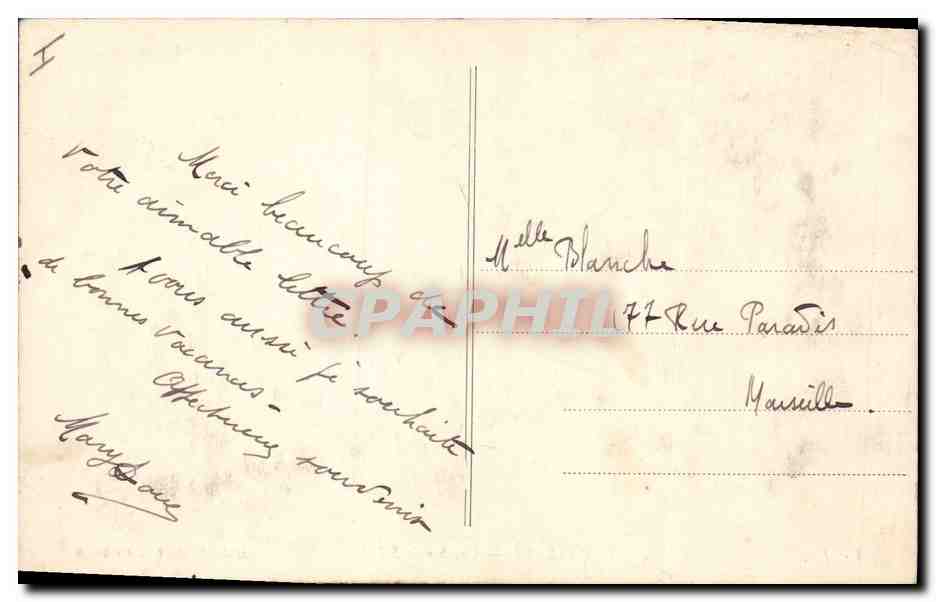 Merci beaucoup de
votre aimable lettre.
A vous aussi je souhaite
de bonnes vacances -
Affectueux souvenir
Mary
Melle Blanche
77 Rue Paradis
Marseille.
CPAPHIL